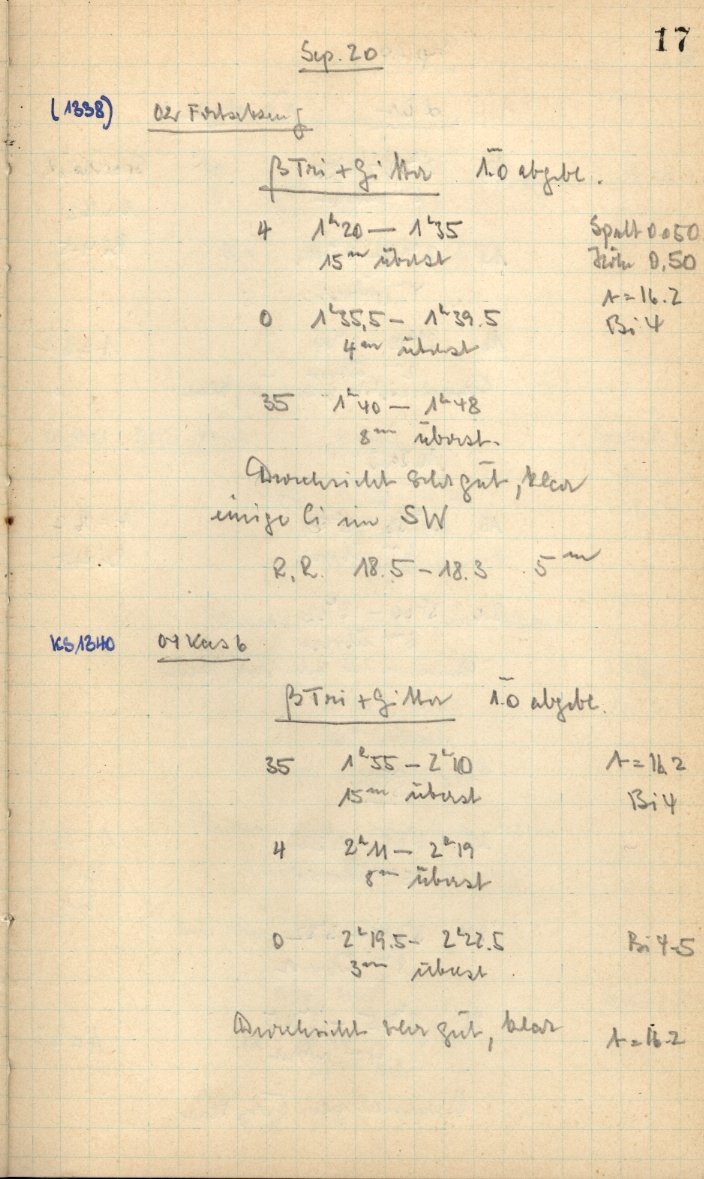 17
Sep. 20
(1338) 02r Fortsetzung
β Tri + Gitter 1.0 abgebl.
4 1ʰ20 — 1ʰ35 Spalt 0.050
15ᵐ überst Höhe 0,50
A = 16.2
0 1ʰ35,5 — 1ʰ39.5 Bi 4
4ᵐ überst
35 1ʰ40 — 1ʰ48
8ᵐ überst.
Durchsicht sehr gut, klar
einige Ci im SW
R.R. 18.5 — 18.3 5ᵐ
KS1340 04 Kas b
β Tri + Gitter 1.0 abgebl.
35 1ʰ55 — 2ʰ10 A = 16.2
15ᵐ überst Bi 4
4 2ʰ11 — 2ʰ19
8ᵐ überst
0 2ʰ19.5 - 2ʰ22.5 Bi 4-5
3ᵐ überst.
Durchsicht sehr gut, klar A = 16.2